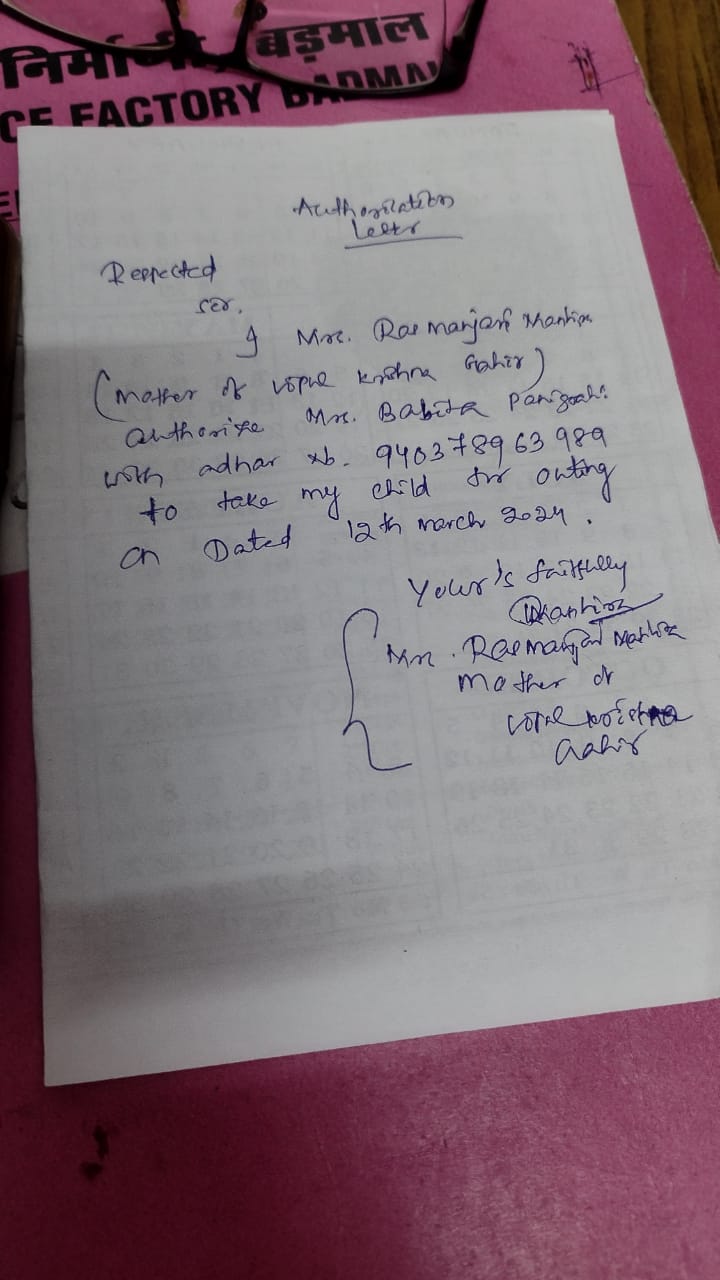 निर्माणी, बड़माल
CE FACTORY BADMAL
Authorization
Letter
Respected
Sir,
I Mrs. Rasmanjari Manhira
(Mother of Vopal Krishna Gahir)
authorize Mrs. Babita Panigrahi
with adhar No. 940378963989
to take my child for outing
on Dated 12th march 2024.
Your's faithfully
Mrs. Rasmanjari
Mother of
Gahir